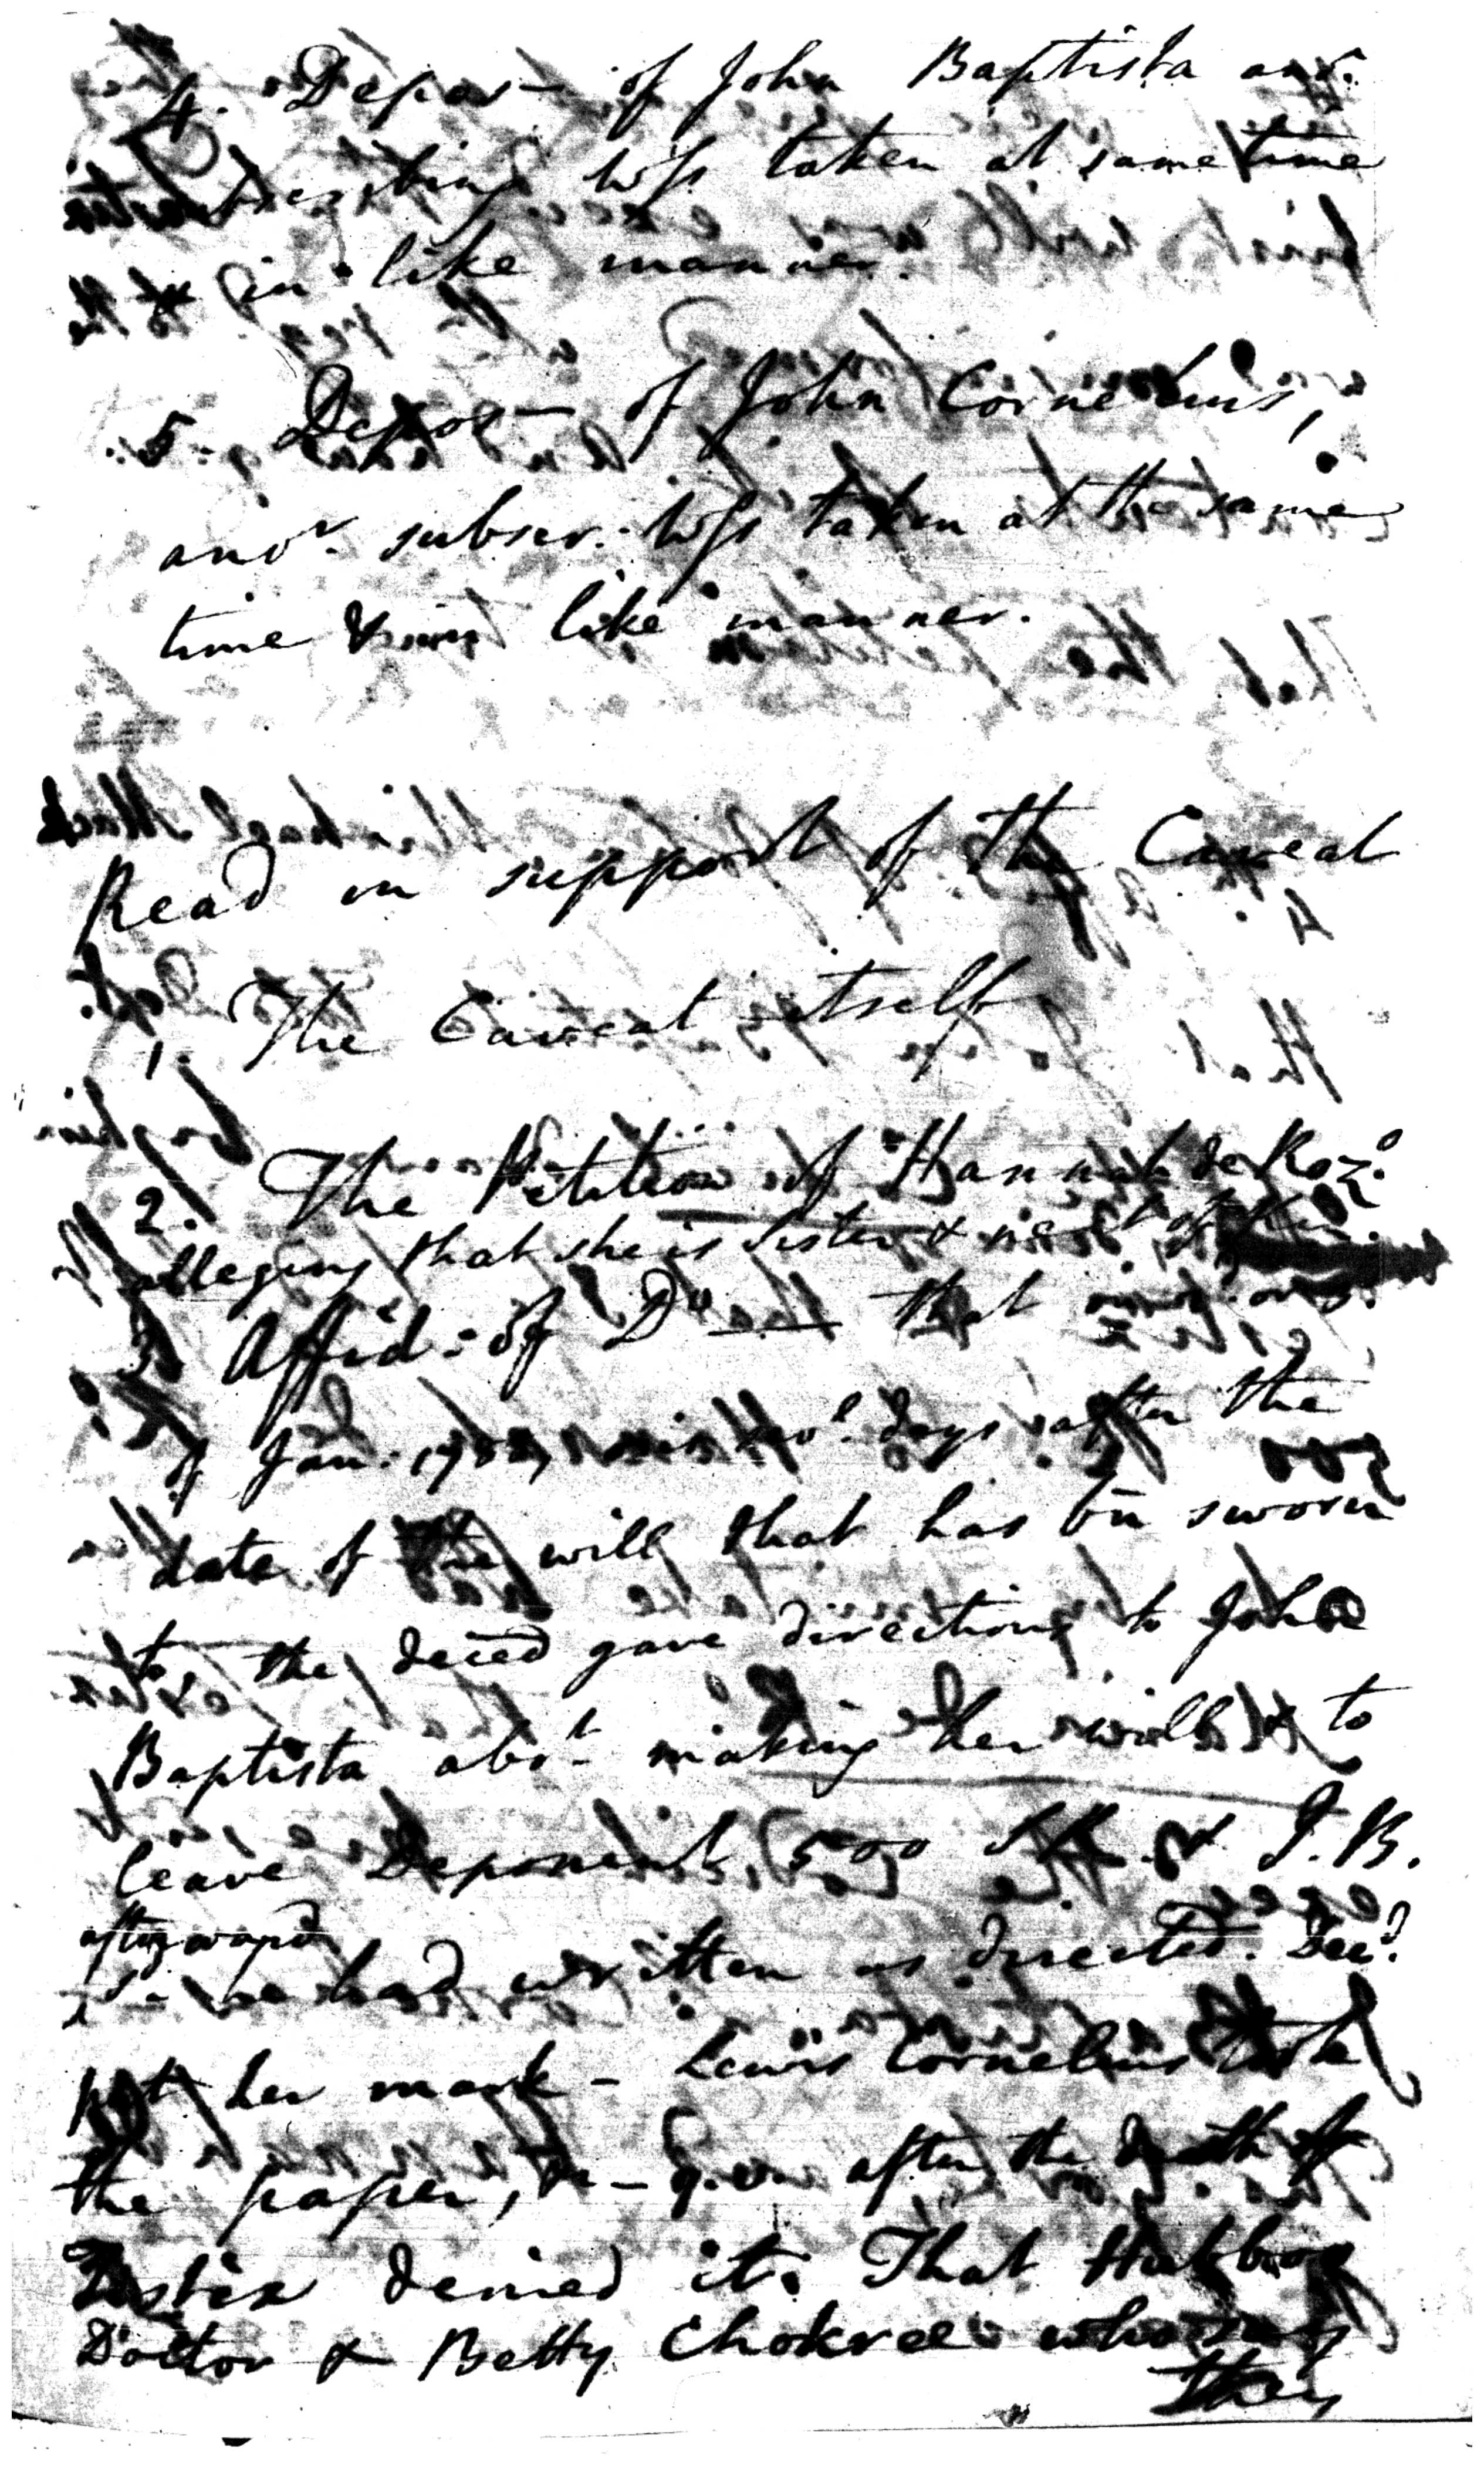 4. Depos- of John Baptista anor.
subscribing Wss taken at same time
& in like manner.
5. Depos- of John Cornelius,
anor. subscr. Wss taken at the same
time & in like manner.
Read in support of the Caveat
1. The Caveat itself
2. The Petition of Hannah de Rozo.
alleging that she is sister & next of kin.
3. Affid: of Do that
of Jan: 1782, days after the
date of the will that has bn sworn
to, the deced gave directions to John
Baptista abot. making her will & to
leave Deponent 500 SR & J.B.
afterward
he had written as directed. Deed.
put her mark - Lewis Cornelius took
the paper, & - after the death of
Testix denied it. That
Doctor & Betty Chokree who say
they